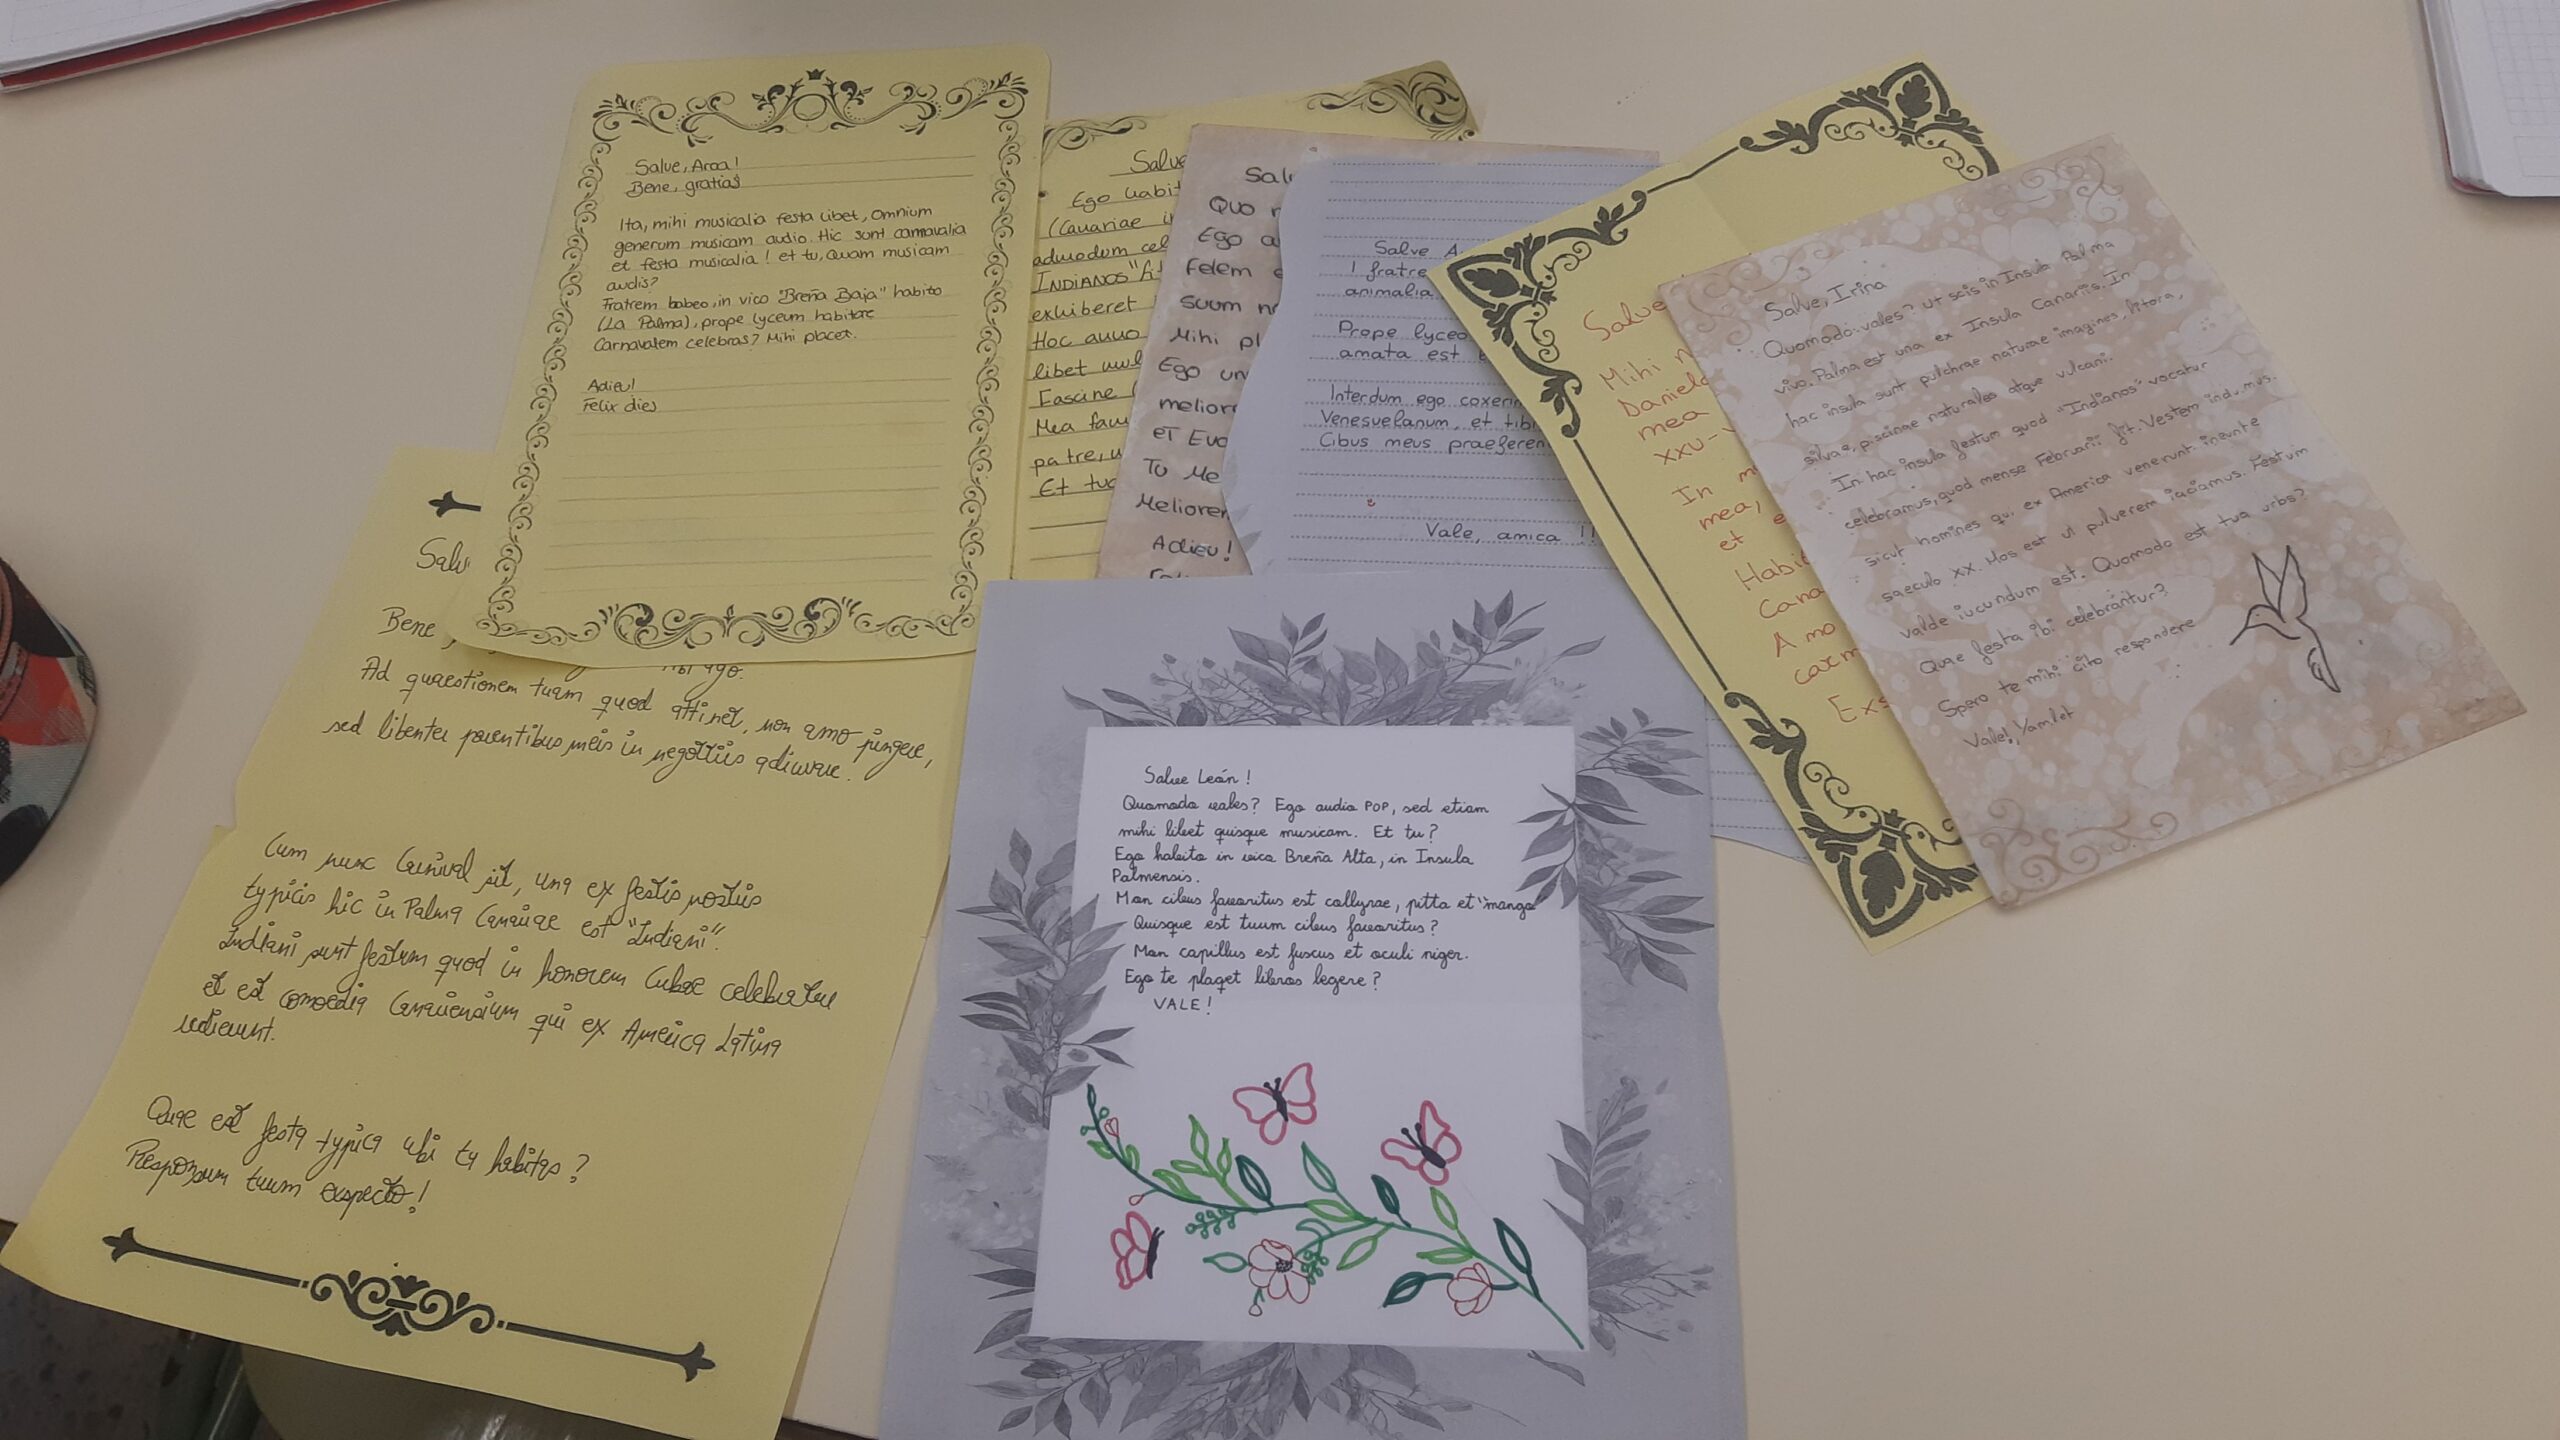 Salve, Aroa!
Bene, gratias
Ita, mihi musicalia festa libet, Omnium
generum musicam audio. Hic sunt carnavalia
et festa musicalia! et tu, quam musicam
audis?
Fratrem babeo, in vico "Breña Baja" habito
(La Palma), prope lyceum habitare
Carnavalem celebras? Mihi placet.
Adieu!
Felix dies
Salve
Ego habit
(Canariae i
admodum cel
INDIANOS
exhiberet
Hoc anno
libet mul
Fascine
Mea fam
patre, u
Et tuc
Sal
Quo
Ego a
Felem e
suum n
Mihi pl
Ego un
melior
ET Euo
Tu Me
Meliorem
Adieu!
Salve A
! fratre
animalia
Prope lyceo
amata est
Interdum ego coxerin
Venesuelanum, et tibi
Cibus meus praeferen
Vale, amica !!
Salve
Mihi n
Daniela
mea
XXV-V
In m
mea,
et
Habit
Cana
Amo
carm
Exs
Salve, Irina
Quomodo vales? Ut scis in Insula Palma
vivo. Palma est una ex Insula Canariis. In
hac insula sunt pulchrae naturae imagines, litora,
silvae, piscinae naturales atque vulcani.
In hac insula festum quod "Indianos" vocatur
celebramus, quod mense Februarii fit. Vestem induimus
sicut homines qui ex America venerunt ineunte
saeculo XX. Mos est ut pulverem iaciamus. Festum
valde iucundum est. Quomodo est tua urbs?
Quae festa ibi celebrantur?
Spero te mihi cito respondere
Vale!, Yamlet
Salv
Bene
tibi ago.
Ad quaestionem tuam quod attinet, non amo pingere,
sed libenter parentibus meis in negotiis adiuvare.
Cum nunc Carnival sit, una ex festis nostris
typicis hic in Palma Canariae est "Indiani".
Indiani sunt festum quod in honorem Cubae celebratur
et est comoedia Canariensium qui ex America Latina
redierunt.
Quae est festa typica ubi tu habitas?
Responsum tuum exspecto!
Salve León!
Quomodo vales? Ego audio POP, sed etiam
mihi libet quisque musicam. Et tu?
Ego habito in vico Breña Alta, in Insula
Palmensis.
Mon cibus favoritus est collyrae, pitta et "mango
Quisque est tuum cibus favoritus?
Mon capillus est fuscus et oculi niger.
Ego te plaqet libros legere?
VALE!